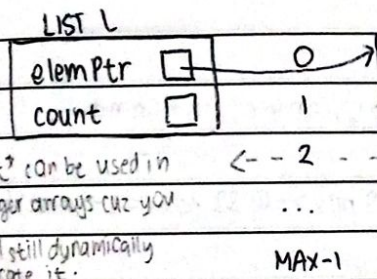 LIST L
elemPtr 0
count 1
can be used in <-- 2 - -
arrays cuz you ...
still dynamically MAX-1
it.